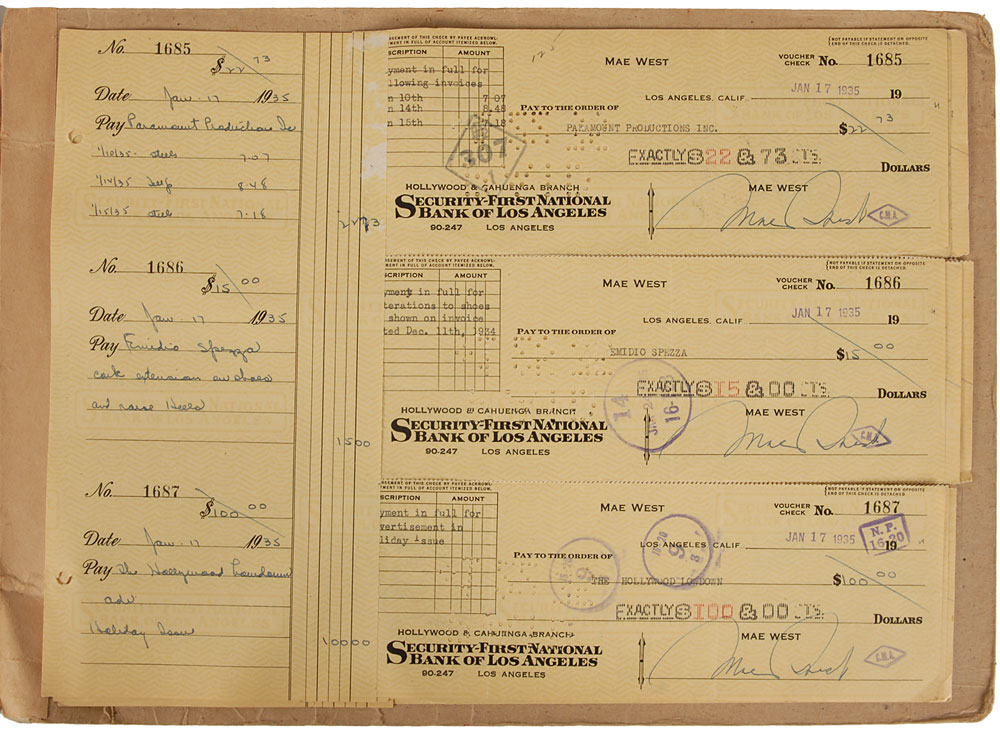 No. 1685
$22 73
Date Jan. 17 1935
Pay Paramount Productions Inc
1/10/35- 7.07
1/14/35 8.48
1/15/35 7.18
2273
No. 1686
$15 00
Date Jan. 17 1935
Pay Emidio Spezza
cork extension on shoes
and raise Heels
1500
No. 1687
$100 00
Date Jan. 17 1935
Pay The Hollywood Lowdown
adv.
Holiday Issue
10000
SEMENT OF THIS CHECK BY PAYEE ACKNOWL-
MENT IN FULL OF ACCOUNT ITEMIZED BELOW.
SCRIPTION AMOUNT
yment in full for
llowing invoices
n 10th 7 07
n 14th 8.48
n 15th 7.18
307
125
MAE WEST
NOT PAYABLE IF STATEMENT ON OPPOSITE
END OF THIS CHECK IS DETACHED.
VOUCHER CHECK No. 1685
LOS ANGELES, CALIF. JAN 17 1935 19
PAY TO THE ORDER OF
PARAMOUNT PRODUCTIONS INC. $22 73
EXACTLY $22 & 73 CTS. DOLLARS
HOLLYWOOD & CAHUENGA BRANCH
SECURITY-FIRST NATIONAL
BANK OF LOS ANGELES
90-247 LOS ANGELES
MAE WEST
Mae West
C.M.A.
SEMENT OF THIS CHECK BY PAYEE ACKNOWL-
MENT IN FULL OF ACCOUNT ITEMIZED BELOW.
SCRIPTION AMOUNT
yment in full for
terations to shoes
shown on invoice
ted Dec. 11th, 1934
MAE WEST
NOT PAYABLE IF STATEMENT ON OPPOSITE
END OF THIS CHECK IS DETACHED.
VOUCHER CHECK No. 1686
LOS ANGELES, CALIF JAN 17 1935 19
PAY TO THE ORDER OF
EMIDIO SPEZZA $15 00
EXACTLY $15 & 00 CTS. DOLLARS
14
16-
HOLLYWOOD & CAHUENGA BRANCH
SECURITY-FIRST NATIONAL
BANK OF LOS ANGELES
90-247 LOS ANGELES
MAE WEST
Mae West
C.M.A.
SEMENT OF THIS CHECK BY PAYEE ACKNOWL-
MENT IN FULL OF ACCOUNT ITEMIZED BELOW.
SCRIPTION AMOUNT
yment in full for
vertisement in
liday issue
MAE WEST
NOT PAYABLE IF STATEMENT ON OPPOSITE
END OF THIS CHECK IS DETACHED.
VOUCHER CHECK No. 1687
LOS ANGELES, CALIF JAN 17 1935 19
N.P.
16-20
PAY TO THE ORDER OF
THE HOLLYWOOD LOWDOWN $100 00
EXACTLY $100 & 00 CTS. DOLLARS
HOLLYWOOD & CAHUENGA BRANCH
SECURITY-FIRST NATIONAL
BANK OF LOS ANGELES
90-247 LOS ANGELES
MAE WEST
Mae West
C.M.A.